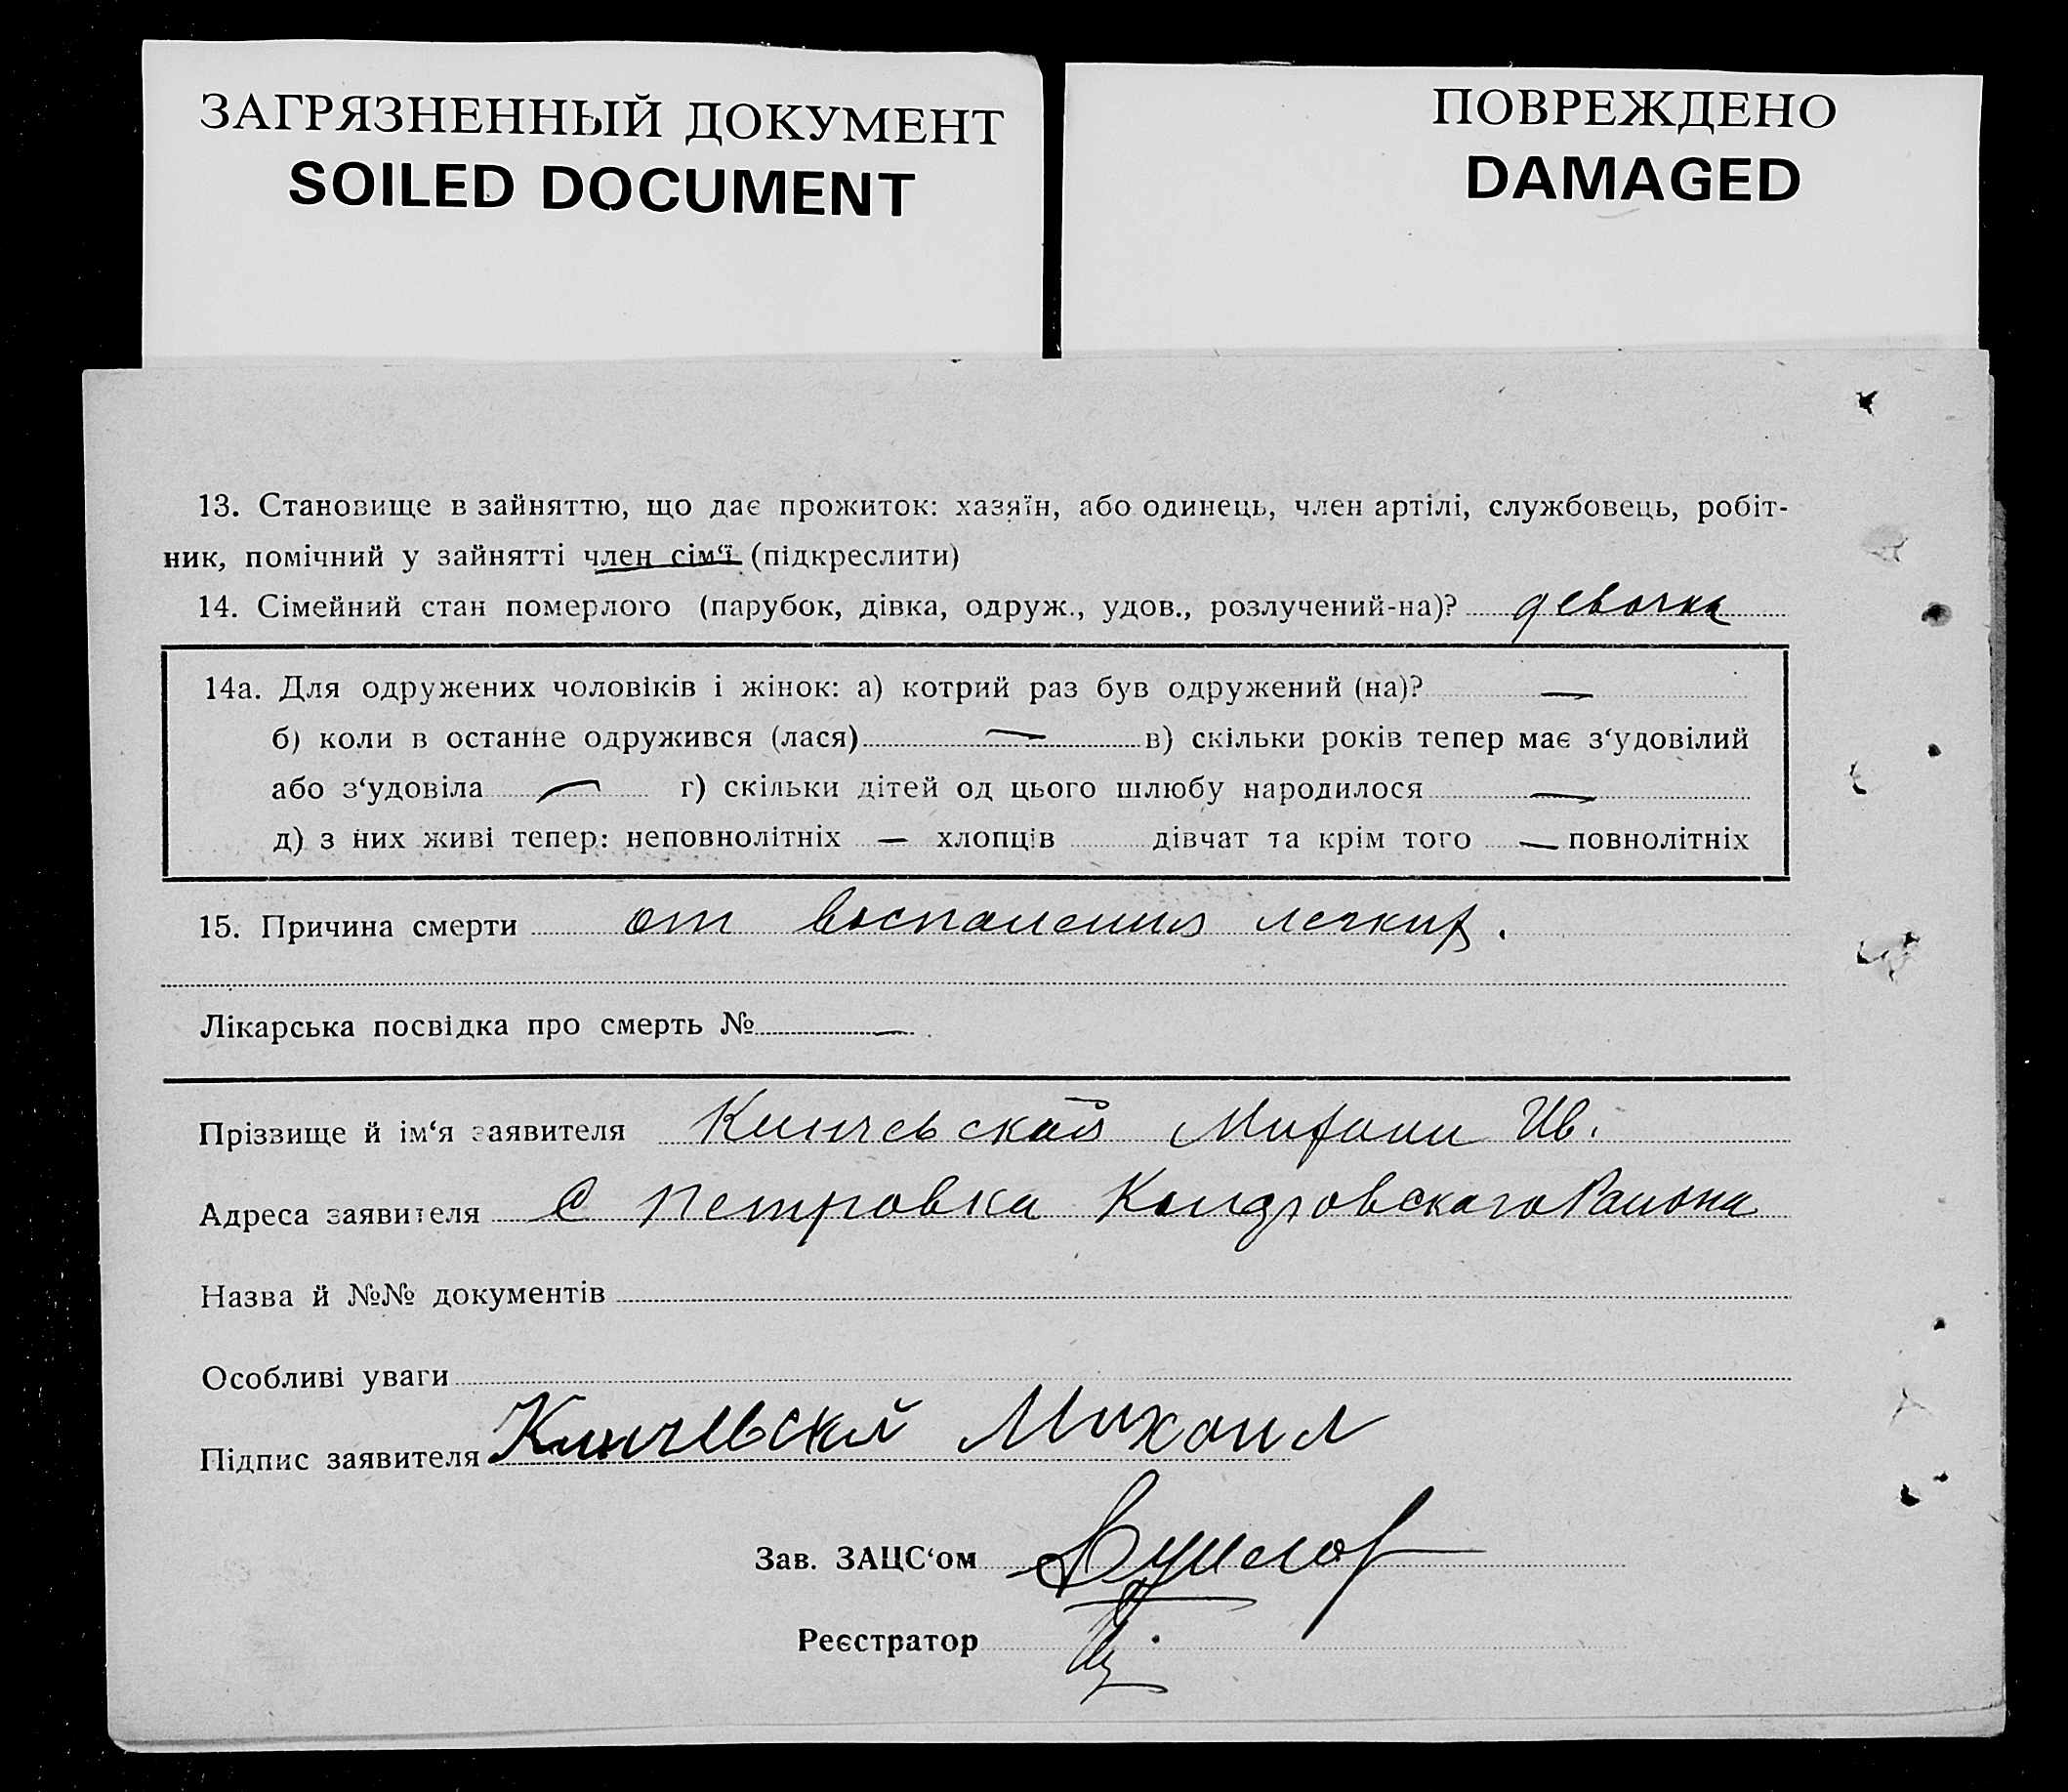 ЗАГРЯЗНЕННЫЙ ДОКУМЕНТ
SOILED DOCUMENT
ПОВРЕЖДЕНО
DAMAGED
13. Становище в зайняттю, що дає прожиток: хазяїн, або одинець, член артілі, службовець, робіт-
ник, помічний у зайнятті член сім‘ї (підкреслити)
14. Сімейний стан померлого (парубок, дівка, одруж., удов., розлучений-на)? девочка
14а. Для одружених чоловіків і жінок: а) котрий раз був одружений (на)? —
б) коли в останнє одружився (лася) — в) скільки років тепер має з‘удовілий
або з‘удовіла — г) скільки дітей од цього шлюбу народилося —
д) з них живі тепер: неповнолітніх — хлопців дівчат та крім того — повнолітніх
15. Причина смерти от воспаления легких.
Лікарська посвідка про смерть № —
Прізвище й ім‘я заявителя Кинчевский Михаил Ив.
Адреса заявителя С Петровка Района
Назва й №№ документів
Особливі уваги
Підпис заявителя Кинчевский Михаил
Зав. ЗАЦС‘ом
Реєстратор